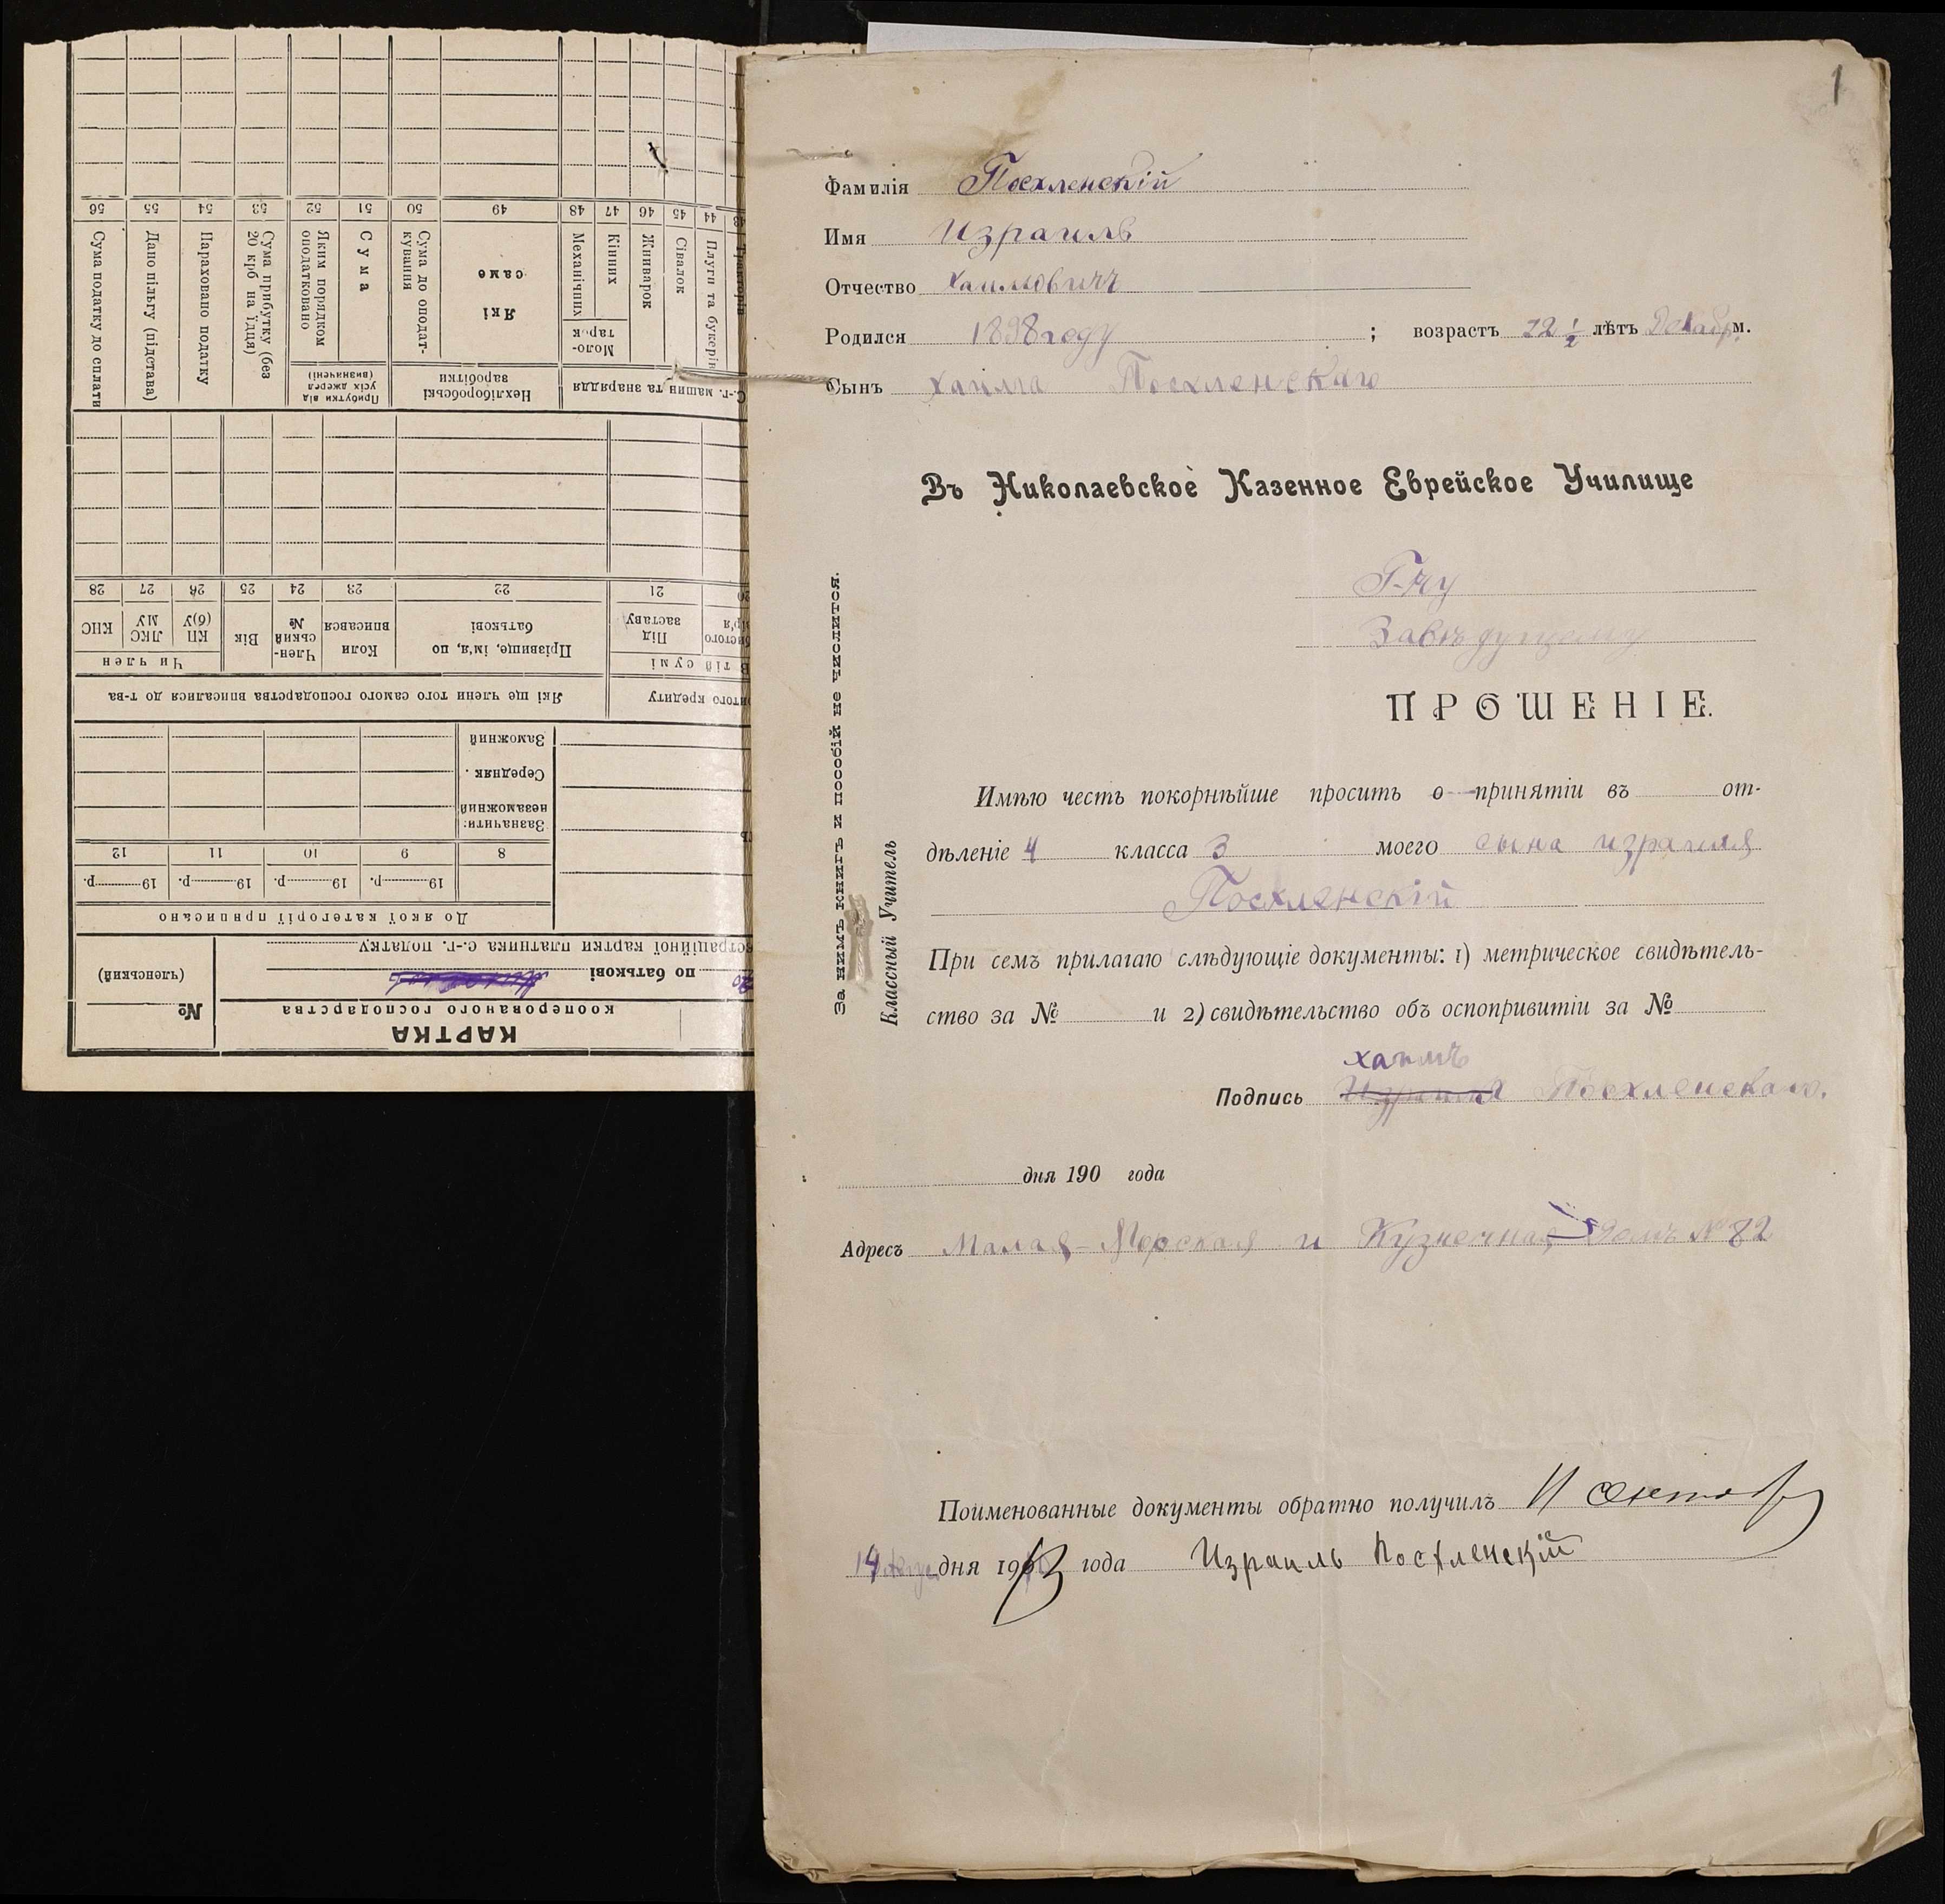 1
Фамилія Посхленскій
Имя Израиль
Отчество Хаимовичъ
Родился 1898 году ; возрастъ 12 ½ лѣтъ м.
Сынъ Хаима Посхленскаго
Въ Николаевское Казенное Еврейское Училище
Г-ну
Завѣдующему
ПРОШЕНІЕ.
Имѣю честь покорнѣйше просить о принятіи въ от-
дѣленіе 4 класса 3 моего сына Израиля
Посхленскій
При семъ прилагаю слѣдующіе документы: 1) метрическое свидѣтель-
ство за № и 2) свидѣтельство объ оспопривитіи за №
Хаимъ
Подпись Израиля Посхленскаго.
дня 190 года
Адресъ Малая-Морская и Кузнечная домъ № 82
Поименованные документы обратно получилъ
14 дня 19 года Израиль Посхленскій
За нимъ книгъ и пособій не числится.
Классный Учитель
КАРТКА
кооперованого господарства
№
(членський)
по батькові
страційної картки платника с.-г. податку
До якої категорії приписано
19 р. 19 р. 19 р. 19 р.
8 9 10 11 12
Зазначити:
незаможний
Середняк
Заможний
Які ще члени того самого господарства вписалися до т-ва
итого кредиту
В тій сумі
Під заставу
Прізвище, ім'я, по батькові
Коли вписався
Член-ський №
Вік
Чи член
КП(б)У
ЛКСМУ
КНС
21 22 23 24 25 26 27 28
С.-г. машин та знаряддя
Нехліборобські заробітки
Прибутки від усіх джерел (визначені)
Плуги та букерів
Сівалок
Жниварок
Молотарок
Кінних
Механічних
Які саме
Сума до оподаткування
Сума
Яким порядком оподатковано
Сума прибутку (без 20 крб на їдця)
Нараховано податку
Дано пільгу (підстава)
Сума податку до сплати
44 45 46 47 48 49 50 51 52 53 54 55 56